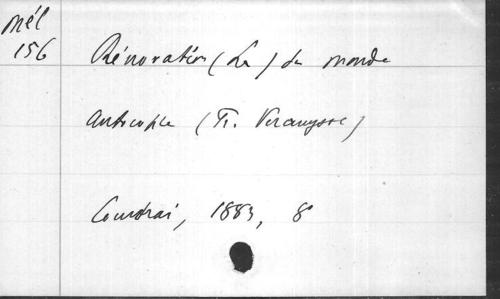 Mél
156
Rénovation (La) du monde
(Fr. Vercruysse)
Courtrai, 1883, 8°